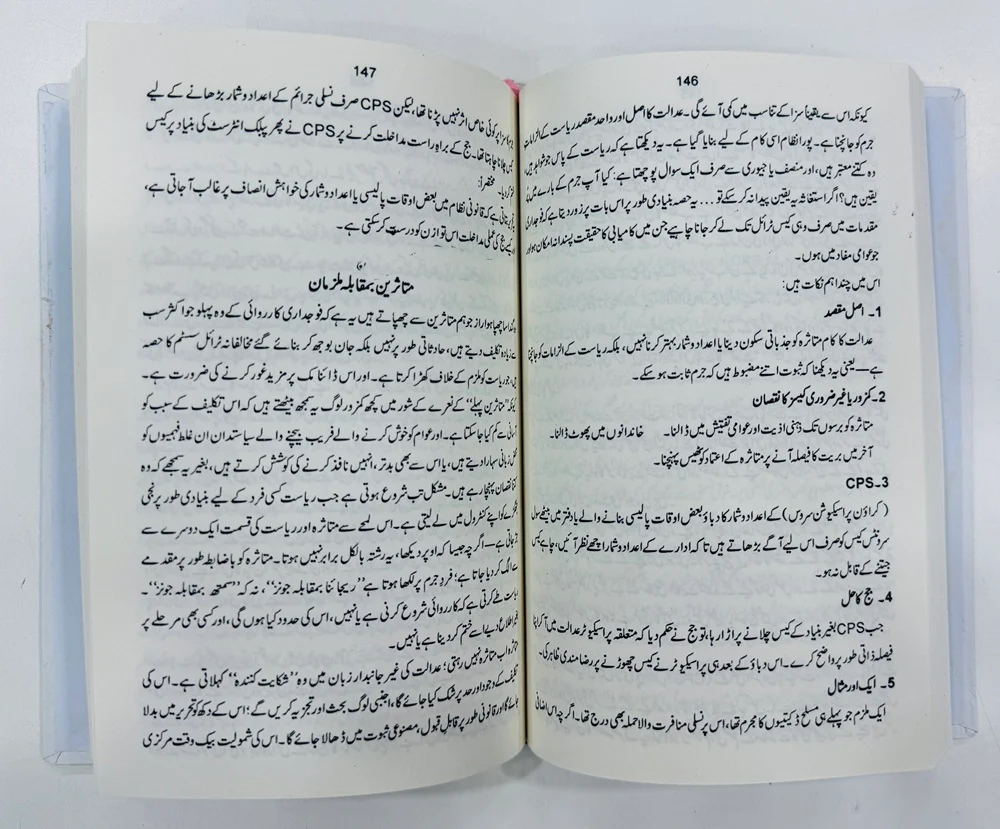 146
کیونکہ اس سے یقیناً سزا کے تناسب میں کمی آئے گی۔ عدالت کا اصل اور واحد مقصد ریاست کے الزامات
جرم کو جانچنا ہے۔ پورا نظام اسی کام کے لیے بنایا گیا ہے۔ یہ دیکھتا ہے کہ ریاست کے پاس جو شواہد ہیں،
وہ کتنے معتبر ہیں، اور منصف یا جیوری سے صرف ایک سوال پوچھتا ہے: کیا آپ جرم کے بارے میں
یقین ہیں؟ اگر استغاثہ یہ یقین پیدا نہ کر سکے تو... یہ حصہ بنیادی طور پر اس بات پر زور دیتا ہے کہ فوجداری
مقدمات میں صرف وہی کیس ٹرائل تک لے کر جانا چاہیے جن میں کامیابی کا حقیقت پسندانہ امکان ہو اور
جو عوامی مفاد میں ہوں۔
اس میں چند اہم نکات ہیں:
1۔ اصل مقصد
عدالت کا کام متاثرہ کو جذباتی سکون دینا یا اعداد و شمار بہتر کرنا نہیں، بلکہ ریاست کے الزامات کو جانچنا
ہے—یعنی یہ دیکھنا کہ ثبوت اتنے مضبوط ہیں کہ جرم ثابت ہو سکے۔
2۔ کمزور یا غیر ضروری کیسز کا نقصان
متاثرہ کو برسوں تک ذہنی اذیت اور عوامی تفتیش میں ڈالنا۔ خاندانوں میں پھوٹ ڈالنا۔
آخر میں بریت کا فیصلہ آنے پر متاثرہ کے اعتماد کو ٹھیس پہنچنا۔
3۔ CPS
(کراؤن پراسیکیوشن سروس) کے اعداد و شمار کا دباؤ بعض اوقات پالیسی بنانے والے یا دفتر میں بیٹھے سول
سرونٹس کیس کو صرف اس لیے آگے بڑھاتے ہیں تاکہ ادارے کے اعداد و شمار اچھے نظر آئیں، چاہے کیس
جیتنے کے قابل نہ ہو۔
4۔ جج کا حل
جب CPS بغیر بنیاد کے کیس چلانے پر اڑا رہا، تو جج نے حکم دیا کہ متعلقہ پراسیکیوٹر عدالت میں آ کر اپنا
فیصلہ ذاتی طور پر واضح کرے۔ اس دباؤ کے بعد ہی پراسیکیوٹر نے کیس چھوڑنے پر رضامندی ظاہر کی۔
5۔ ایک اور مثال
ایک ملزم جو پہلے ہی مسلح ڈکیتیوں کا مجرم تھا، اس پر نسلی منافرت والا حملہ بھی درج تھا۔ اگرچہ اس اضافی
147
سزا پر کوئی خاص اثر نہیں پڑنا تھا، لیکن CPS صرف نسلی جرائم کے اعداد و شمار بڑھانے کے لیے
چلانا چاہتا تھا۔ جج کے براہِ راست مداخلت کرنے پر CPS نے پھر پبلک انٹرسٹ کی بنیاد پر کیس
مختصراً:
کہ قانونی نظام میں بعض اوقات پالیسی یا اعداد و شمار کی خواہش انصاف پر غالب آ جاتی ہے،
جج کی عملی مداخلت اس توازن کو درست کر سکتی ہے۔
متاثرین بمقابلہ ملزمان
چھپا ہوا راز جو ہم متاثرین سے چھپاتے ہیں یہ ہے کہ فوجداری کارروائی کے وہ پہلو جو اکثر سب
زیادہ تکلیف دیتے ہیں، حادثاتی طور پر نہیں بلکہ جان بوجھ کر بنائے گئے مخالفانہ ٹرائل سسٹم کا حصہ
جو ریاست کو ملزم کے خلاف کھڑا کرتا ہے۔ اور اس ڈائنامک پر مزید غور کرنے کی ضرورت ہے۔
"متاثرین پہلے" کے نعرے کے شور میں کچھ کمزور لوگ یہ سمجھ بیٹھتے ہیں کہ اس تکلیف کے سبب کو
کم کیا جا سکتا ہے۔ اور عوام کو خوش کرنے والے فریب بیچنے والے سیاستدان ان غلط فہمیوں کو
زبانی سہارا دیتے ہیں، یا اس سے بھی بدتر، انہیں نافذ کرنے کی کوشش کرتے ہیں، بغیر یہ سمجھے کہ وہ
نقصان پہنچا رہے ہیں۔ مشکل تب شروع ہوتی ہے جب ریاست کسی فرد کے لیے بنیادی طور پر نجی
کو اپنے کنٹرول میں لے لیتی ہے۔ اس لمحے سے متاثرہ اور ریاست کی قسمت ایک دوسرے سے
جاتی ہے—اگرچہ جیسا کہ اوپر دیکھا، یہ رشتہ بالکل برابر نہیں ہوتا۔ متاثرہ کو باضابطہ طور پر مقدمے
الگ کر دیا جاتا ہے؛ فردِ جرم پر لکھا ہوتا ہے "ریجائنا بمقابلہ جونز"، نہ کہ "سمتھ بمقابلہ جونز"۔
طے کرتی ہے کہ کارروائی شروع کرنی ہے یا نہیں، اس کی حدود کیا ہوں گی، اور کسی بھی مرحلے پر
اطلاع دیے اسے ختم کر دینا ہے یا نہیں۔
متاثرہ اب متاثرہ نہیں رہتی؛ عدالت کی غیر جانبدار زبان میں وہ "شکایت کنندہ" کہلاتی ہے۔ اس کی
تکلیف کے وجود اور حد پر شک کیا جائے گا، اجنبی لوگ بحث اور تجزیہ کریں گے؛ اس کے دکھ کو تحریر میں بدلا
جائے گا اور قانونی طور پر قابلِ قبول، مصنوعی ثبوت میں ڈھالا جائے گا۔ اس کی شمولیت بیک وقت مرکزی